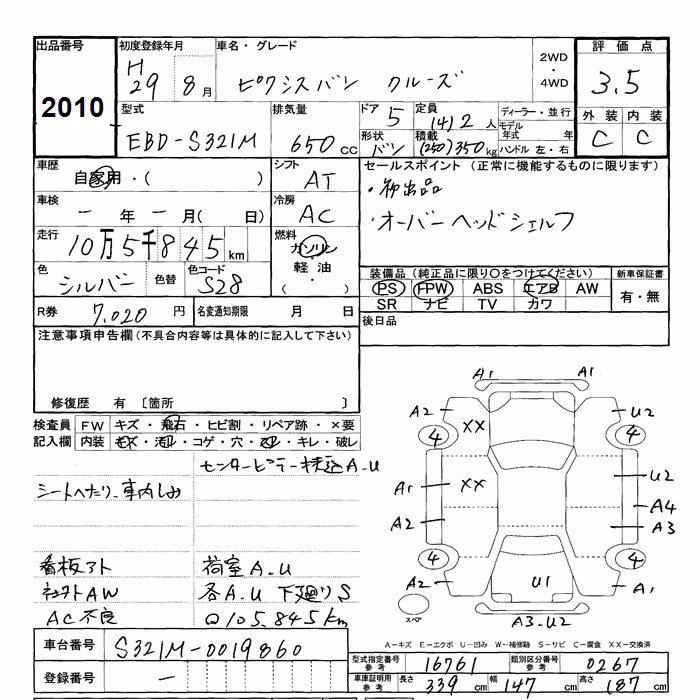 出品番号 初度登録年月 車名・グレード 2WD・4WD 評価点
2010 H29 8月 ピクシスバン クルーズ 3.5
型式 排気量 ドア 定員 ディーラー・並行 外装 内装
EBD-S321M 650cc 5 (4)2人 モデル年式 年 C C
形状 バン 積載 (250)350kg ハンドル 左・右
車歴 シフト セールスポイント (正常に機能するものに限ります)
自家用・( ) AT ・初出品
車検 冷房 ・オーバーヘッドシェルフ
ー年ー月( 日) AC
走行 燃料
10万5千845km ガソリン
色 色替 色コード 軽油 装備品 (純正品に限り○をつけてください) 新車保証書
シルバー S28 ( ・ ) PS FPW ABS エアB AW 有・無
SR ナビ TV カワ
R券 7,020円 名変通知期限 月 日 後日品
注意事項申告欄 (不具合内容等は具体的に記入して下さい)
修復歴 有 〔箇所 〕
検査員 FW キズ・飛石・ヒビ割・リペア跡・×要
記入欄 内装 キズ・汚れ・コゲ・穴・ヌレ・キレ・破レ
A1 A1
A2 XX U2
4 4
センターピラー A.U
シートヘタリ、車内しみ
A1 XX U2
A4
A2 A3
看板アト 荷室A.U
4 4
AW 各A.U 下廻りS
A2 U1 A1
AC不良 Q105,845km
スペア A3.U2
A-キズ E-エクボ U-凹み W-補修跡 S-サビ C-腐食 XX-交換済
車台番号 S321M-0019860
型式指定番号 参考 16761 類別区分番号 参考 0267
登録番号 ー
車庫証明用 参考 長さ 339cm 幅 147cm 高さ 187cm